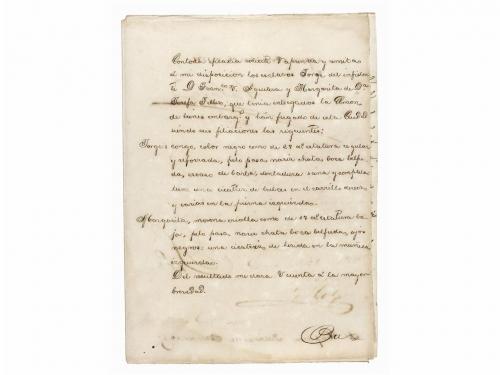 Con toda eficacia solicite V aprenda y remita
á mi disposicion los esclavos Jorge del infiden
te D Franco V. Aguilera y Margarita de Da
Josefa Tellez, que tenia entregados la Admon
de bienes embargs y han fugado de esta Ciudad
siendo sus filiaciones las siguientes:
Jorge congo, color negro como de 27 as estatura regular
y reforzada, pelo pasa nariz chata boca belfu
da, escaso de barba, dentadura sana y completa
tiene una cicatriz de bubas en el carrillo
y varias en la pierna izquierda.
Margarita, morena criolla como de 17 as estatura ba
ja, pelo pasa nariz chata boca belfuda, ojos
negros: una cicatriz de herida en la muñeca
izquierda.
Del resultado me dará V cuenta á la mayor
brevedad.